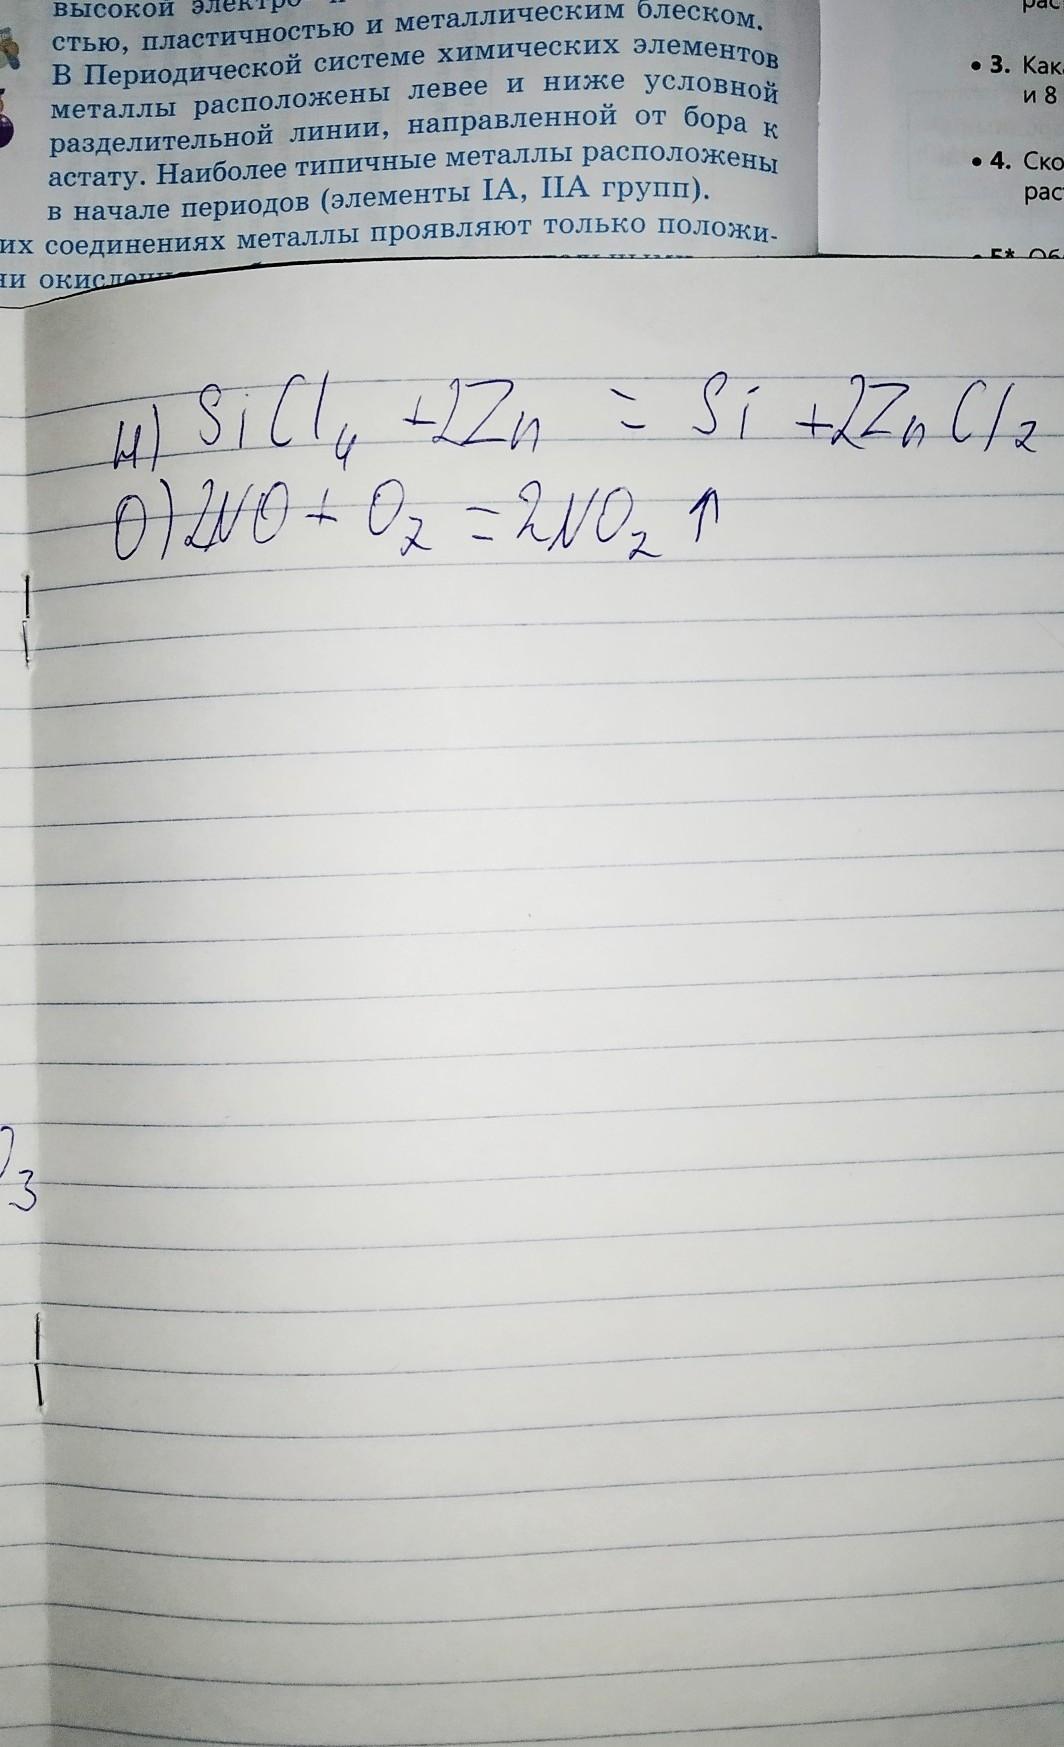 высокой электро
стью, пластичностью и металлическим блеском.
В Периодической системе химических элементов
металлы расположены левее и ниже условной
разделительной линии, направленной от бора к
астату. Наиболее типичные металлы расположены
в начале периодов (элементы IA, IIA групп).
их соединениях металлы проявляют только положи-
ни окислени
рас
• 3. Как
и 8
• 4. Ско
рас
• 5*. Об
н) SiCl₄ +2Zn = Si +2ZnCl₂
О) 2NO + O₂ = 2NO₂ ↑
O₃